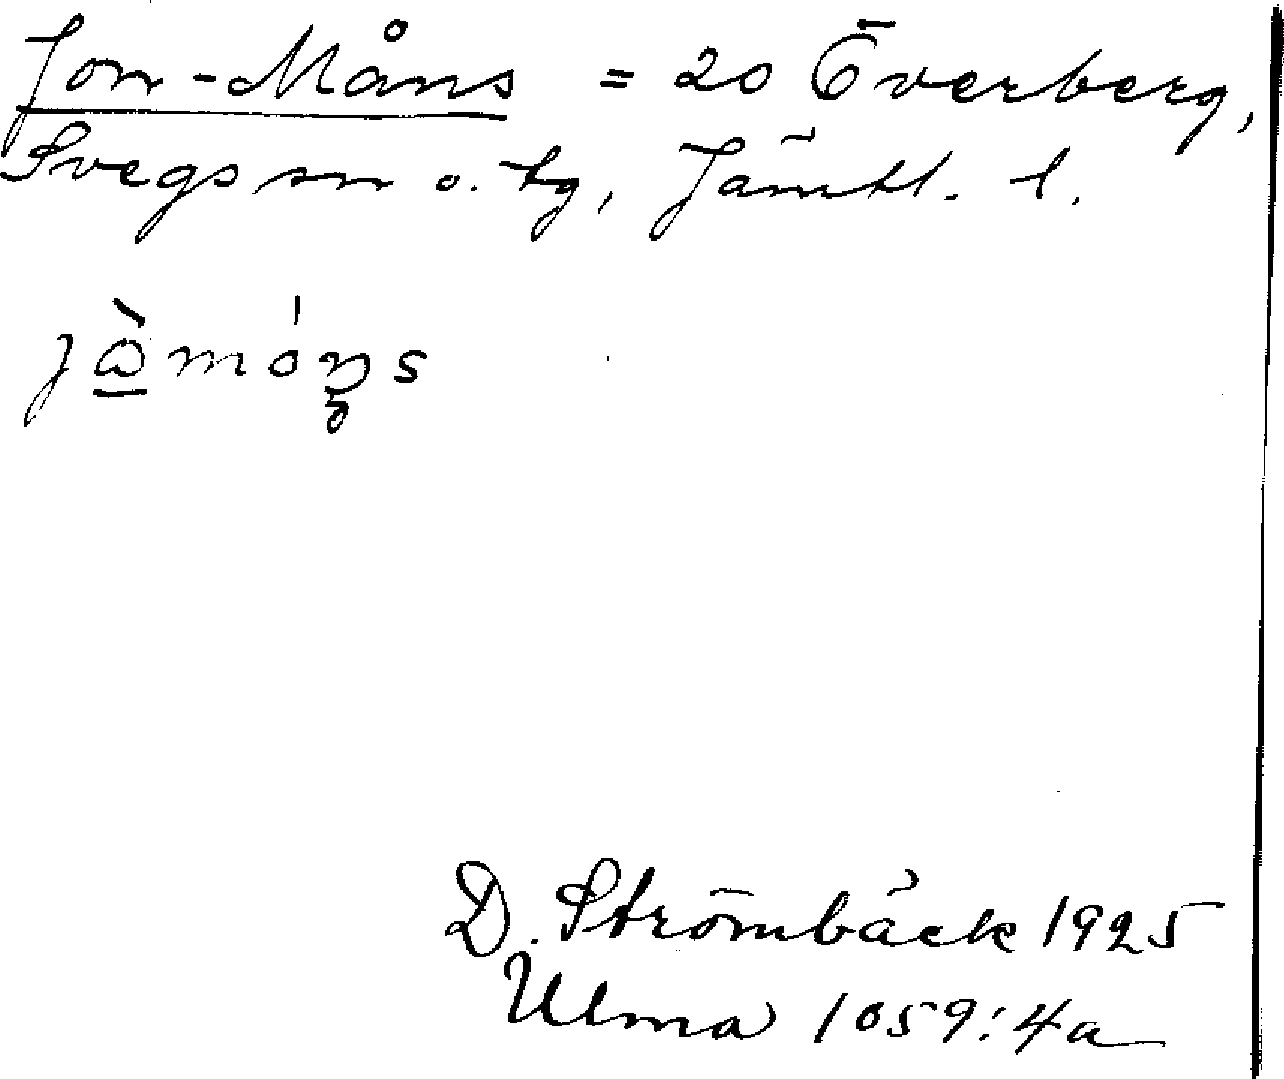 Jon-Måns = 20 Överberg,
Svegs sn o. tg, Jämtl. l.
D. Strömbäck 1925
Ulma 1059:4a